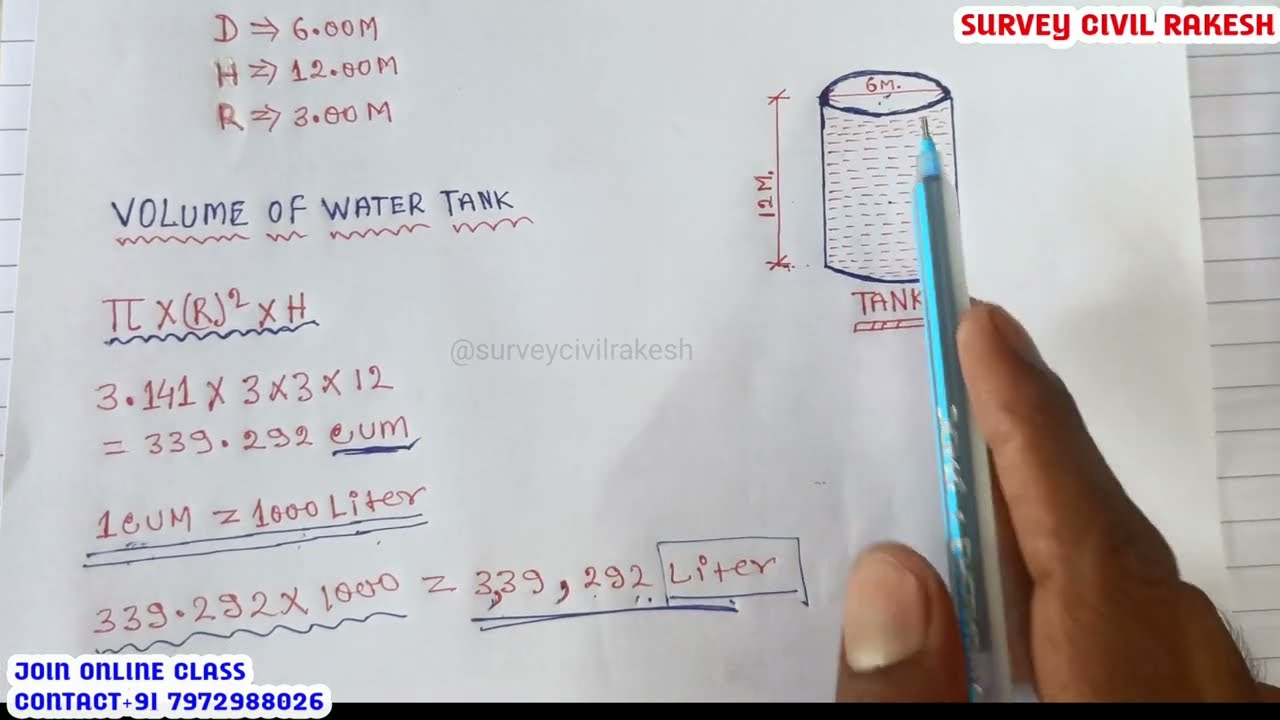 SURVEY CIVIL RAKESH
D ⇒ 6.00M
H ⇒ 12.00M
R ⇒ 3.00M
6M.
12M.
TANK
VOLUME OF WATER TANK
π × (R)² × H
@surveycivilrakesh
3.141 × 3 × 3 × 12
= 339.292 cum
1 CUM = 1000 Liter
339.292 × 1000 = 3,39,292 Liter
JOIN ONLINE CLASS
CONTACT+91 7972988026